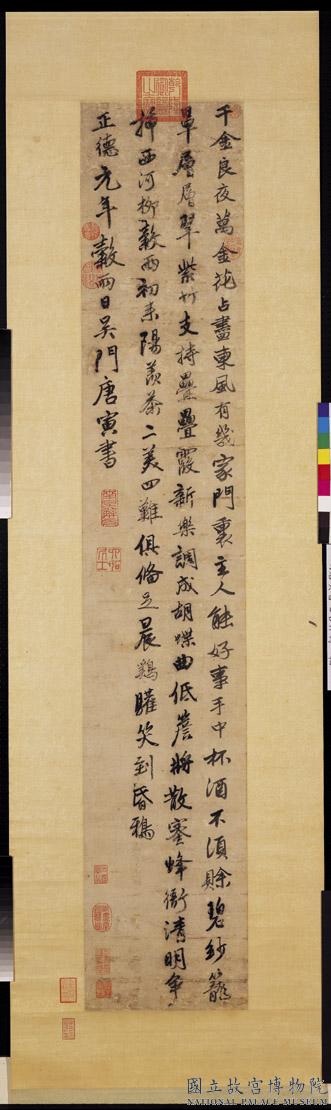 千金良夜萬金花占盡東風有幾家門裏主人能好事手中杯酒不須賖碧紗籠
罩層層翠紫竹支持疊疊霞新樂調成胡蝶曲低簷將散蜜蜂衙清明爭
插西河柳穀雨初來陽羨茶二美四難俱備足晨鷄驩笑到昏鴉
正德元年穀雨日吳門唐寅書
國立故宮博物院
NATIONAL PALACE MUSEUM